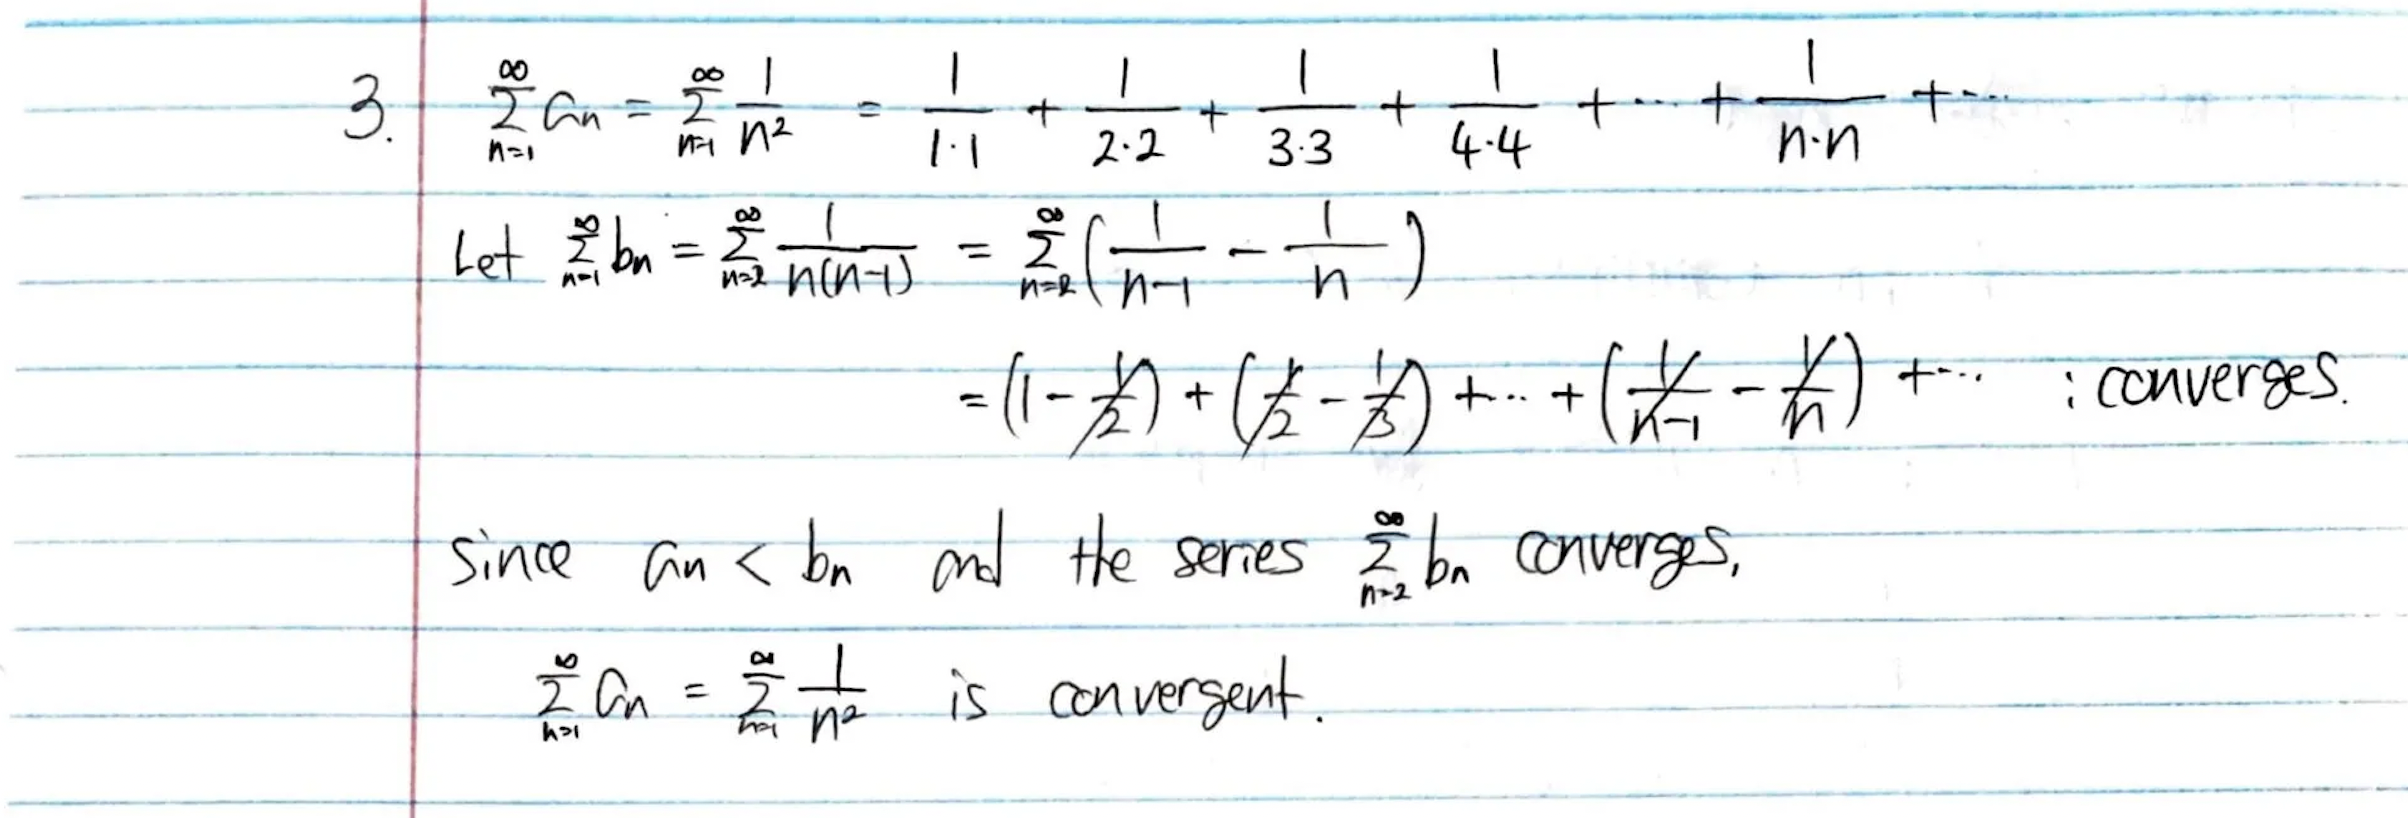 3. ∞Σn=1 an = ∞Σn=1 1/n² = 1/1·1 + 1/2·2 + 1/3·3 + 1/4·4 + ··· + 1/n·n + ···
Let ∞Σn=1 bn = ∞Σn=2 1/n(n-1) = ∞Σn=2 (1/n-1 - 1/n)
= (1 - 1/2) + (1/2 - 1/3) + ··· + (1/n-1 - 1/n) + ··· : converges.
since an < bn and the series ∞Σn=2 bn converges,
∞Σn=1 an = ∞Σn=1 1/n² is convergent.